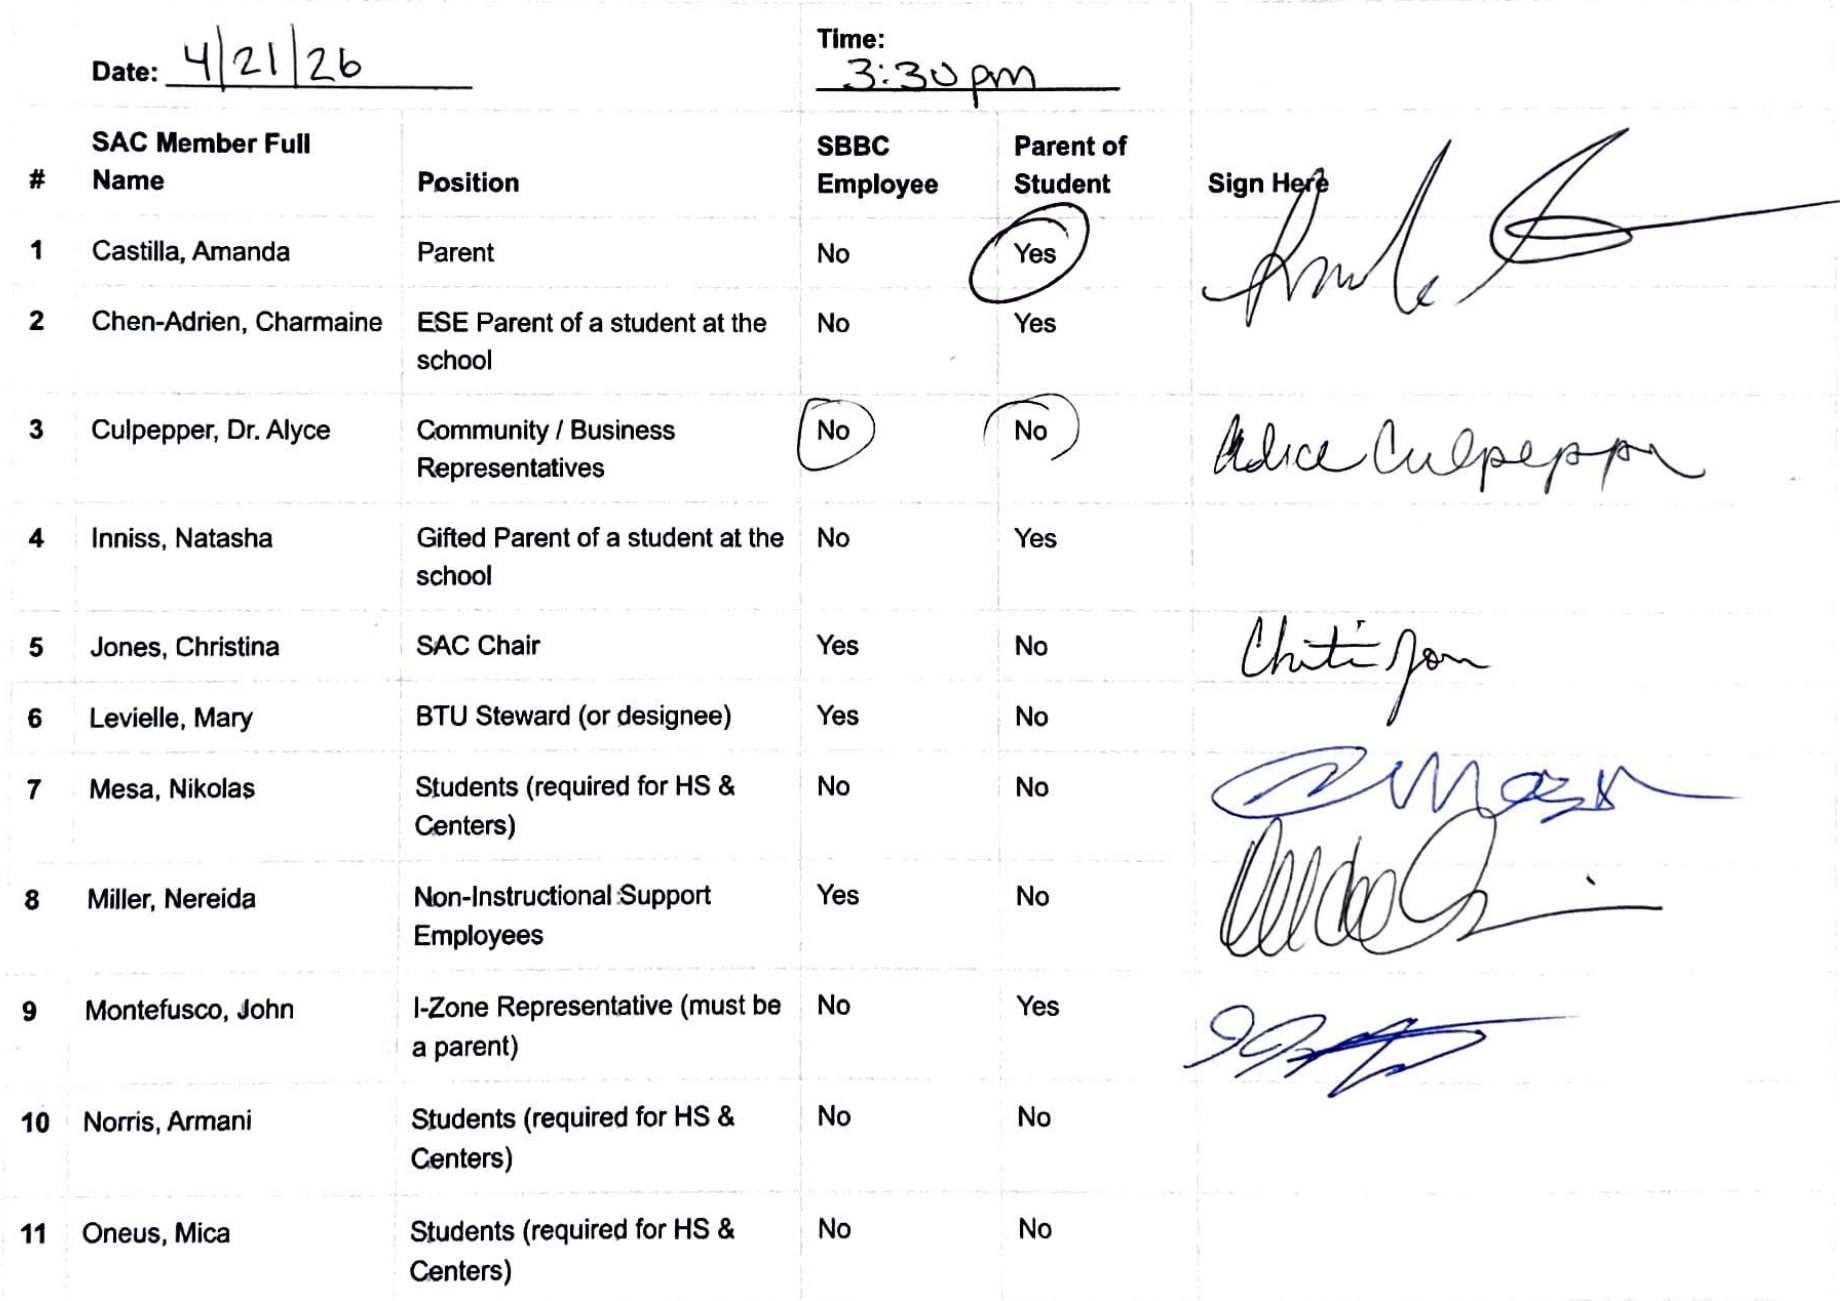 Date: 4/21/26
Time:
3:30pm
# SAC Member Full Name Position SBBC Employee Parent of Student Sign Here
1 Castilla, Amanda Parent No Yes
2 Chen-Adrien, Charmaine ESE Parent of a student at the school No Yes
3 Culpepper, Dr. Alyce Community / Business Representatives No No Culpepper
4 Inniss, Natasha Gifted Parent of a student at the school No Yes
5 Jones, Christina SAC Chair Yes No
6 Levielle, Mary BTU Steward (or designee) Yes No
7 Mesa, Nikolas Students (required for HS & Centers) No No
8 Miller, Nereida Non-Instructional Support Employees Yes No
9 Montefusco, John I-Zone Representative (must be a parent) No Yes
10 Norris, Armani Students (required for HS & Centers) No No
11 Oneus, Mica Students (required for HS & Centers) No No